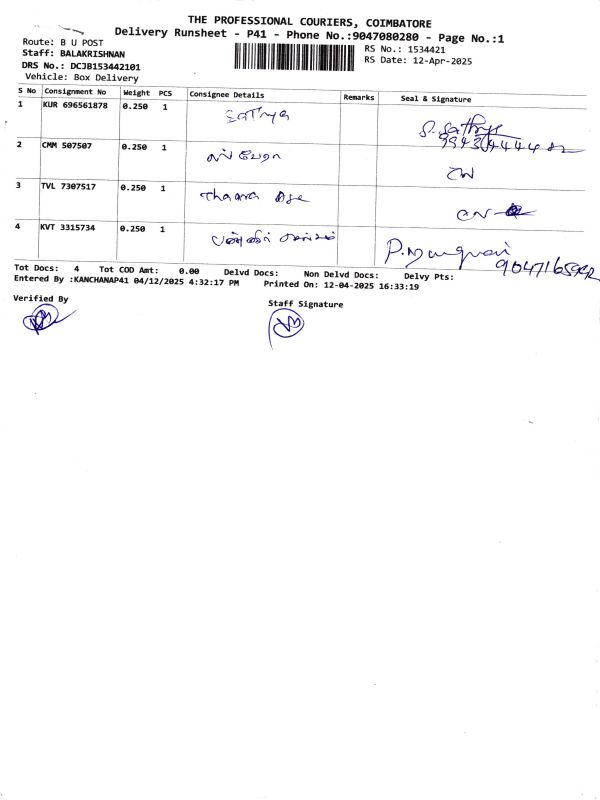 THE PROFESSIONAL COURIERS, COIMBATORE
Delivery Runsheet - P41 - Phone No.:9047080280 - Page No.:1
Route: B U POST
RS No.: 1534421
Staff: BALAKRISHNAN
RS Date: 12-Apr-2025
DRS No.: DCJB153442101
Vehicle: Box Delivery
S No Consignment No Weight PCS Consignee Details Remarks Seal & Signature
1 KUR 696561878 0.250 1 Sathya S. Sathya
2 CMM 507507 0.250 1
3 TVL 7307517 0.250 1 Thaara
4 KVT 3315734 0.250 1
Tot Docs: 4 Tot COD Amt: 0.00 Delvd Docs: Non Delvd Docs: Delvy Pts:
Entered By :KANCHANAP41 04/12/2025 4:32:17 PM Printed On: 12-04-2025 16:33:19
Verified By
Staff Signature